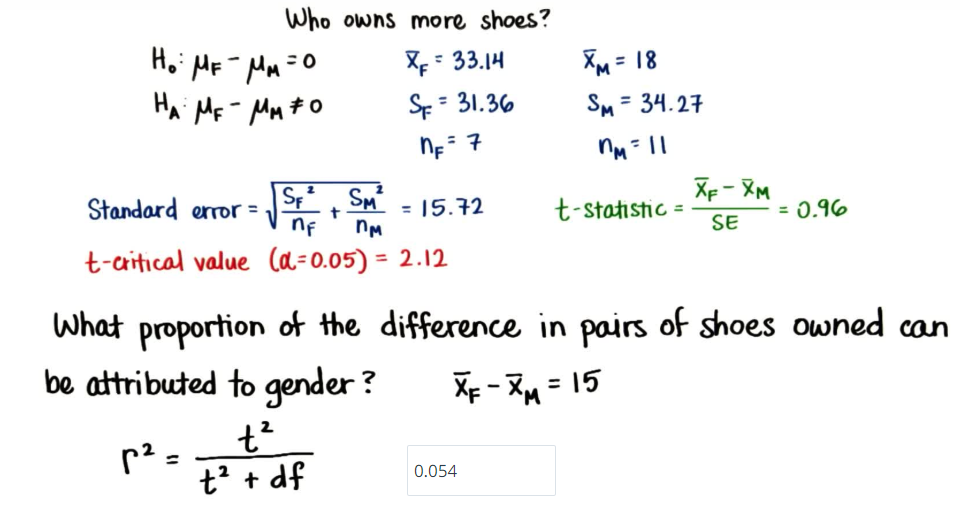 Who owns more shoes?
H₀: μF - μM = 0    x̄F = 33.14    x̄M = 18
HA: μF - μM ≠ 0    SF = 31.36    SM = 34.27
nF = 7    nM = 11
Standard error = √(SF²/nF + SM²/nM) = 15.72    t-statistic = (x̄F - x̄M)/SE = 0.96
t-critical value (α=0.05) = 2.12
What proportion of the difference in pairs of shoes owned can
be attributed to gender?    x̄F - x̄M = 15
r² = t²/(t² + df)    0.054